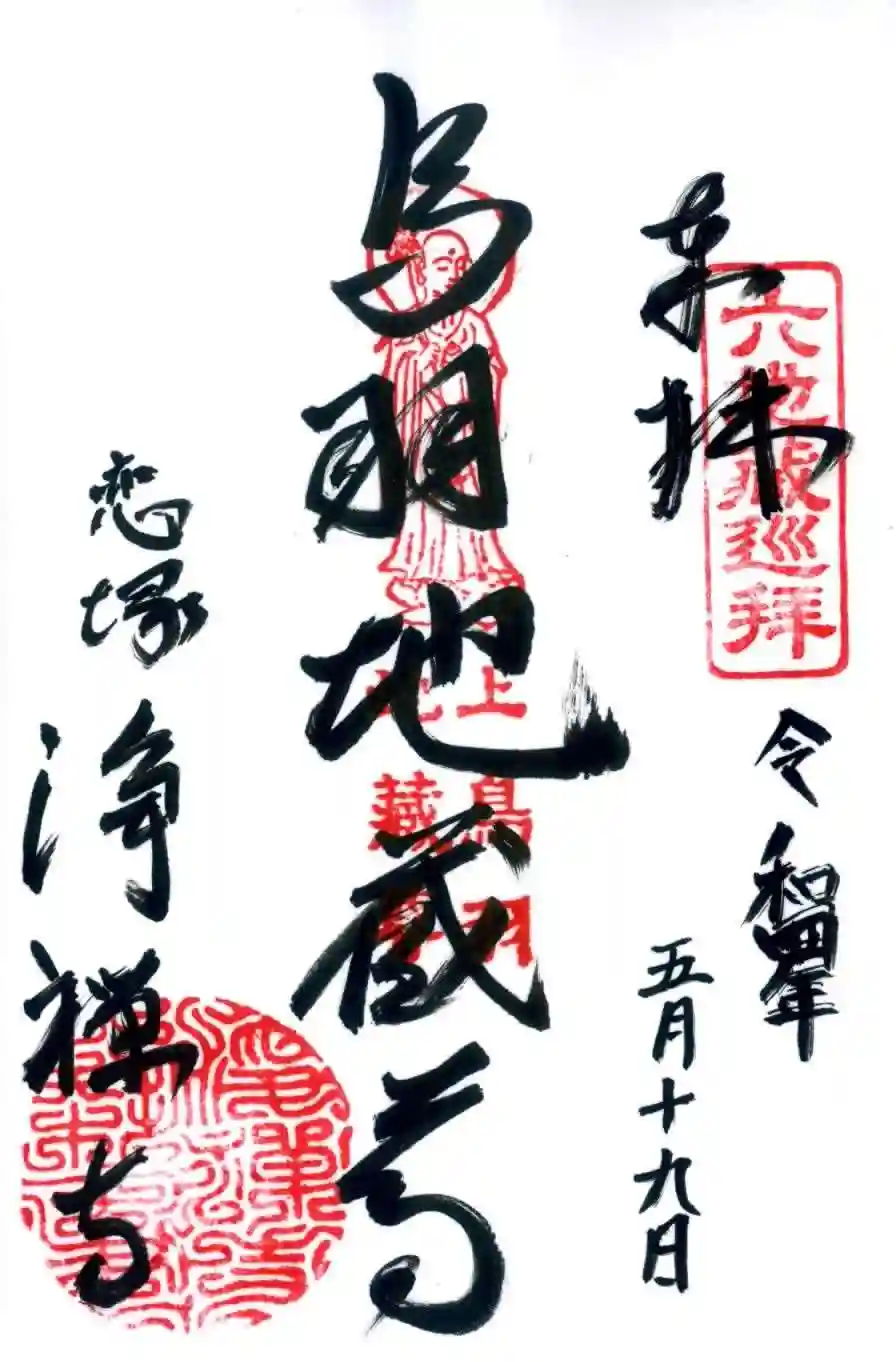 来拝
六地蔵巡拝
令和四年
五月十九日
鳥羽地蔵尊
上鳥羽
地蔵尊
恋塚
浄禅寺